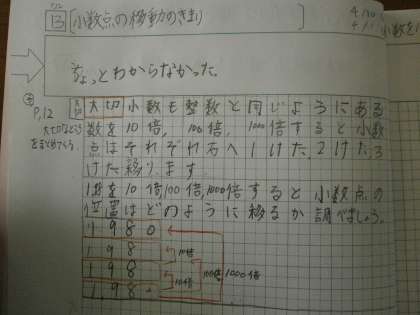 13 小数点の移動のきまり
4/10
ちょっとわからなかった。
P.12
大切なところをまとめてる
大切 小数も整数と同じようにある
数を10倍, 100倍, 1000倍すると小数
点はそれぞれ右へ1けた, 2けた, 3
けた移ります。
10倍, 100倍, 1000倍すると小数点の
位置はどのように移るか調べましょう。
1980
198
198
198.
10倍
10倍
100倍
1000倍